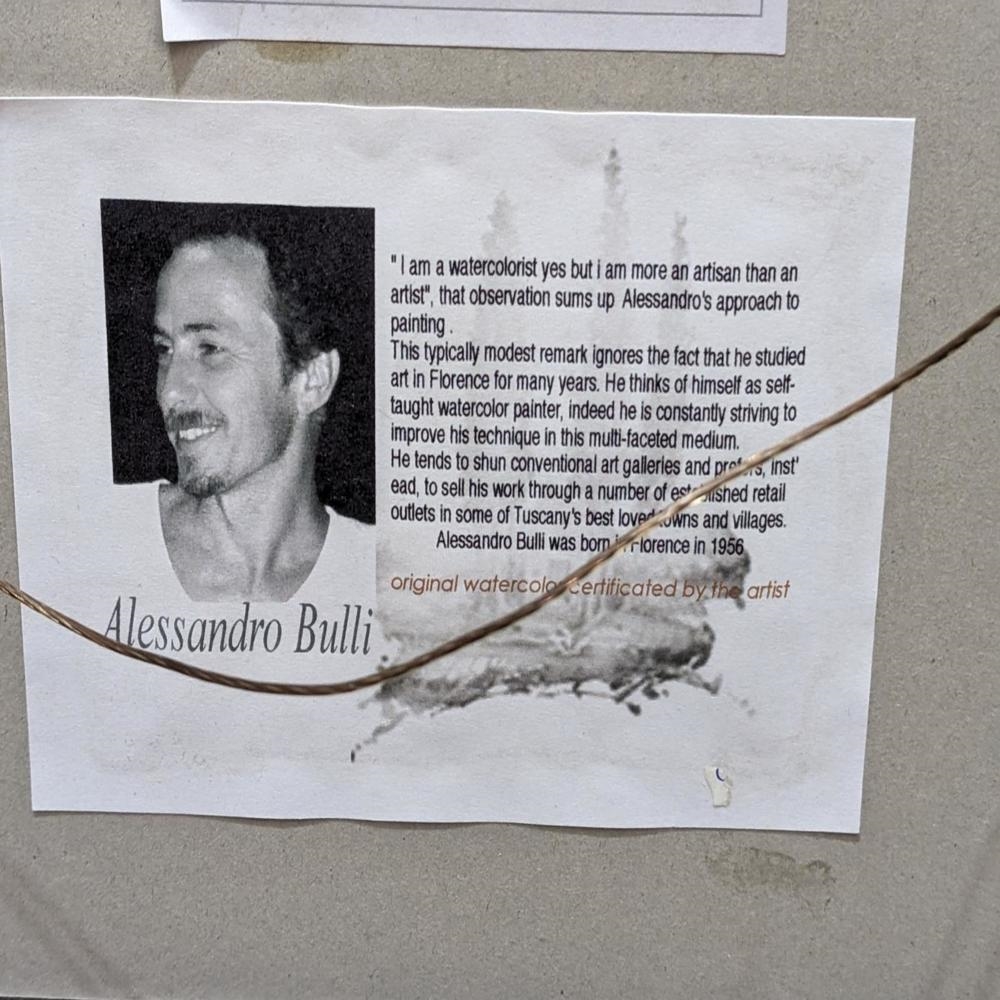 " I am a watercolorist yes but i am more an artisan than an
artist", that observation sums up Alessandro's approach to
painting .
This typically modest remark ignores the fact that he studied
art in Florence for many years. He thinks of himself as self-
taught watercolor painter, indeed he is constantly striving to
improve his technique in this multi-faceted medium.
He tends to shun conventional art galleries and prefers, inst'
ead, to sell his work through a number of established retail
outlets in some of Tuscany's best loved towns and villages.
Alessandro Bulli was born in Florence in 1956
original watercolor certificated by the artist
Alessandro Bulli